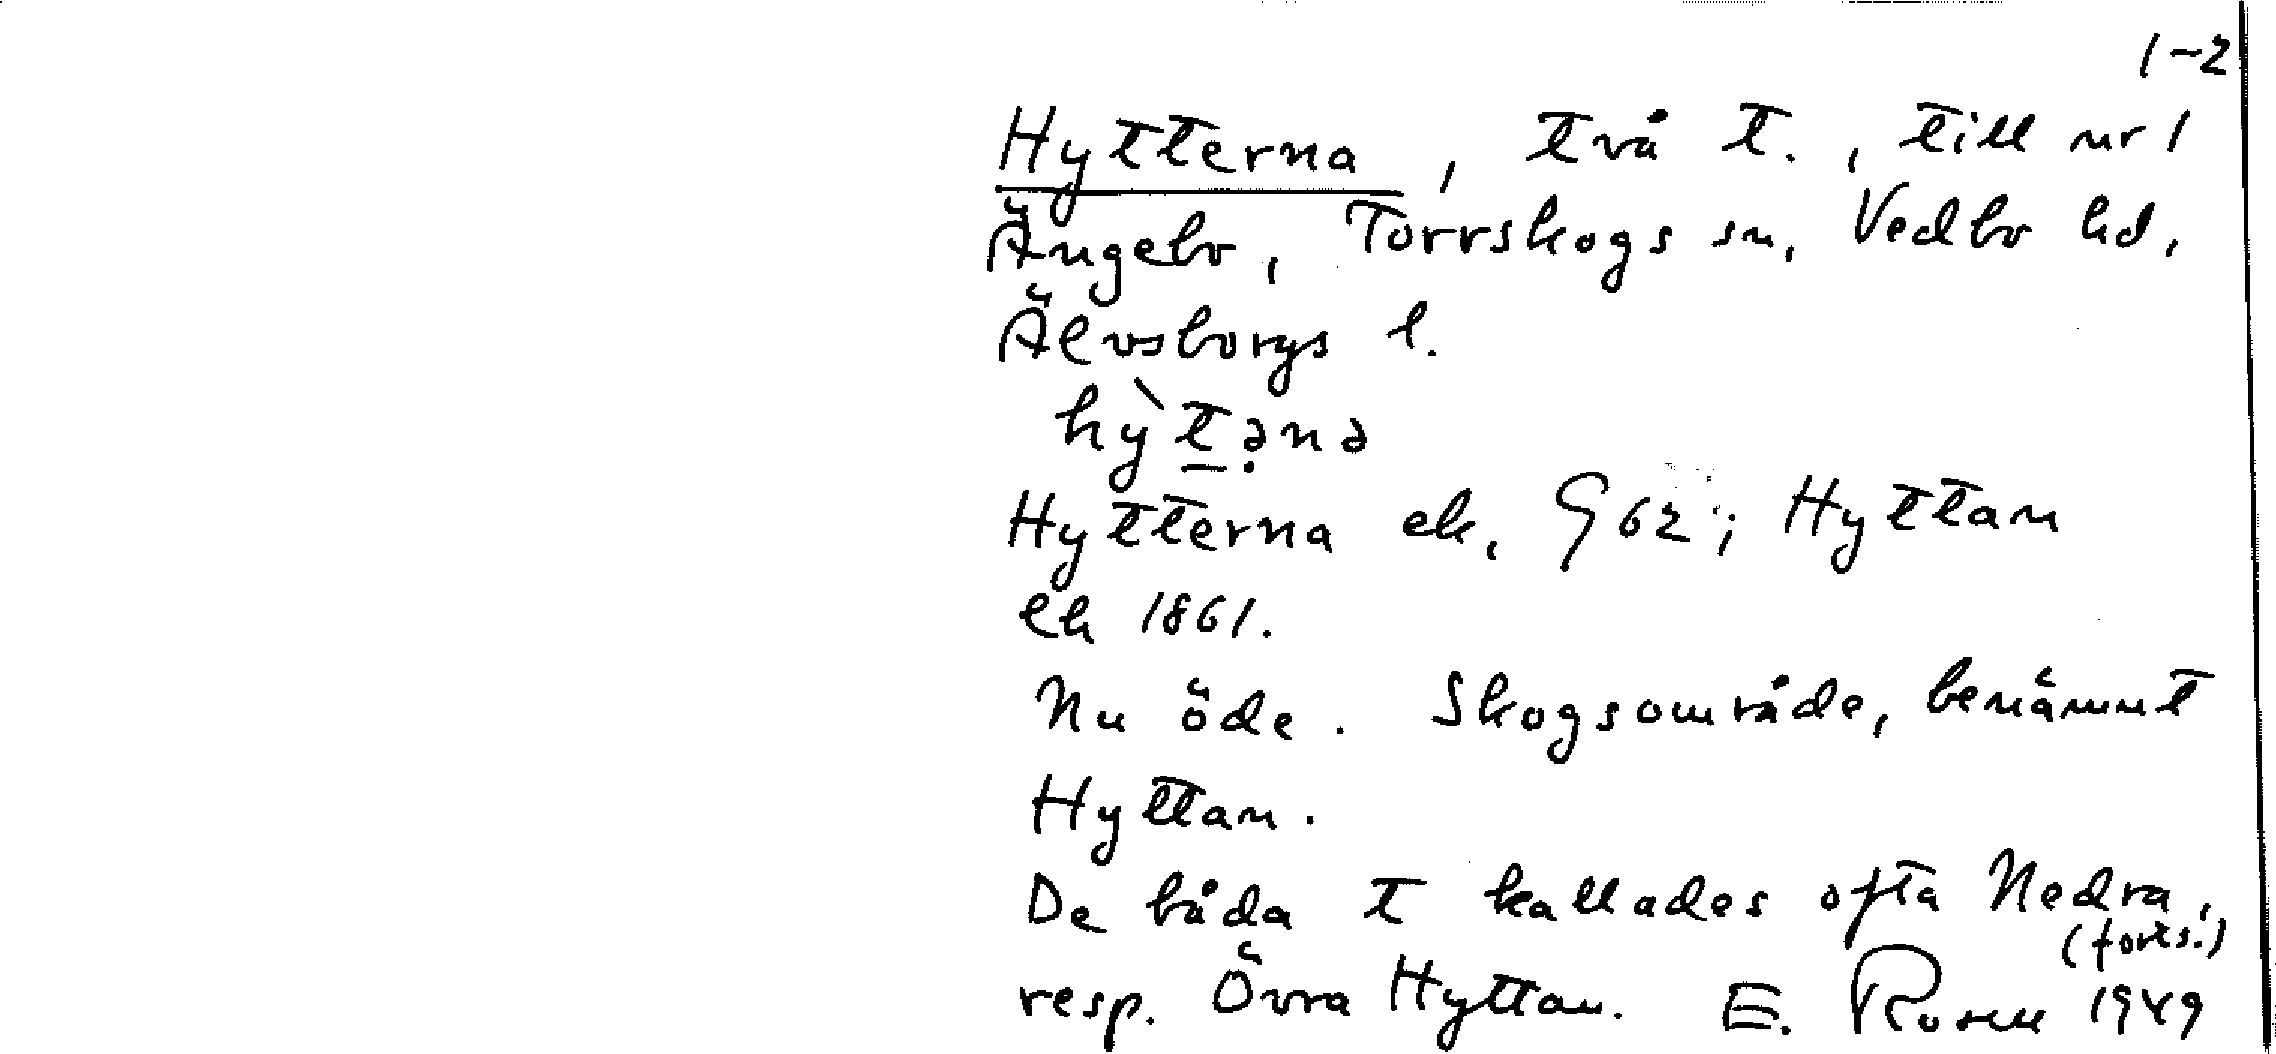 1-2
Hytterna, två t., till nr 1
Ängebo, Torrskogs sn, Vedbo hd,
Älvsborgs l.
hỳt̠ə̣nə
Hytterna ek, G 62; Hyttan
ek 1861.
Nu öde. Skogsområde, benämnt
Hyttan.
De båda t kallades ofta Nedra,
(forts.)
resp. Övra Hyttan. E. Rosen 1949